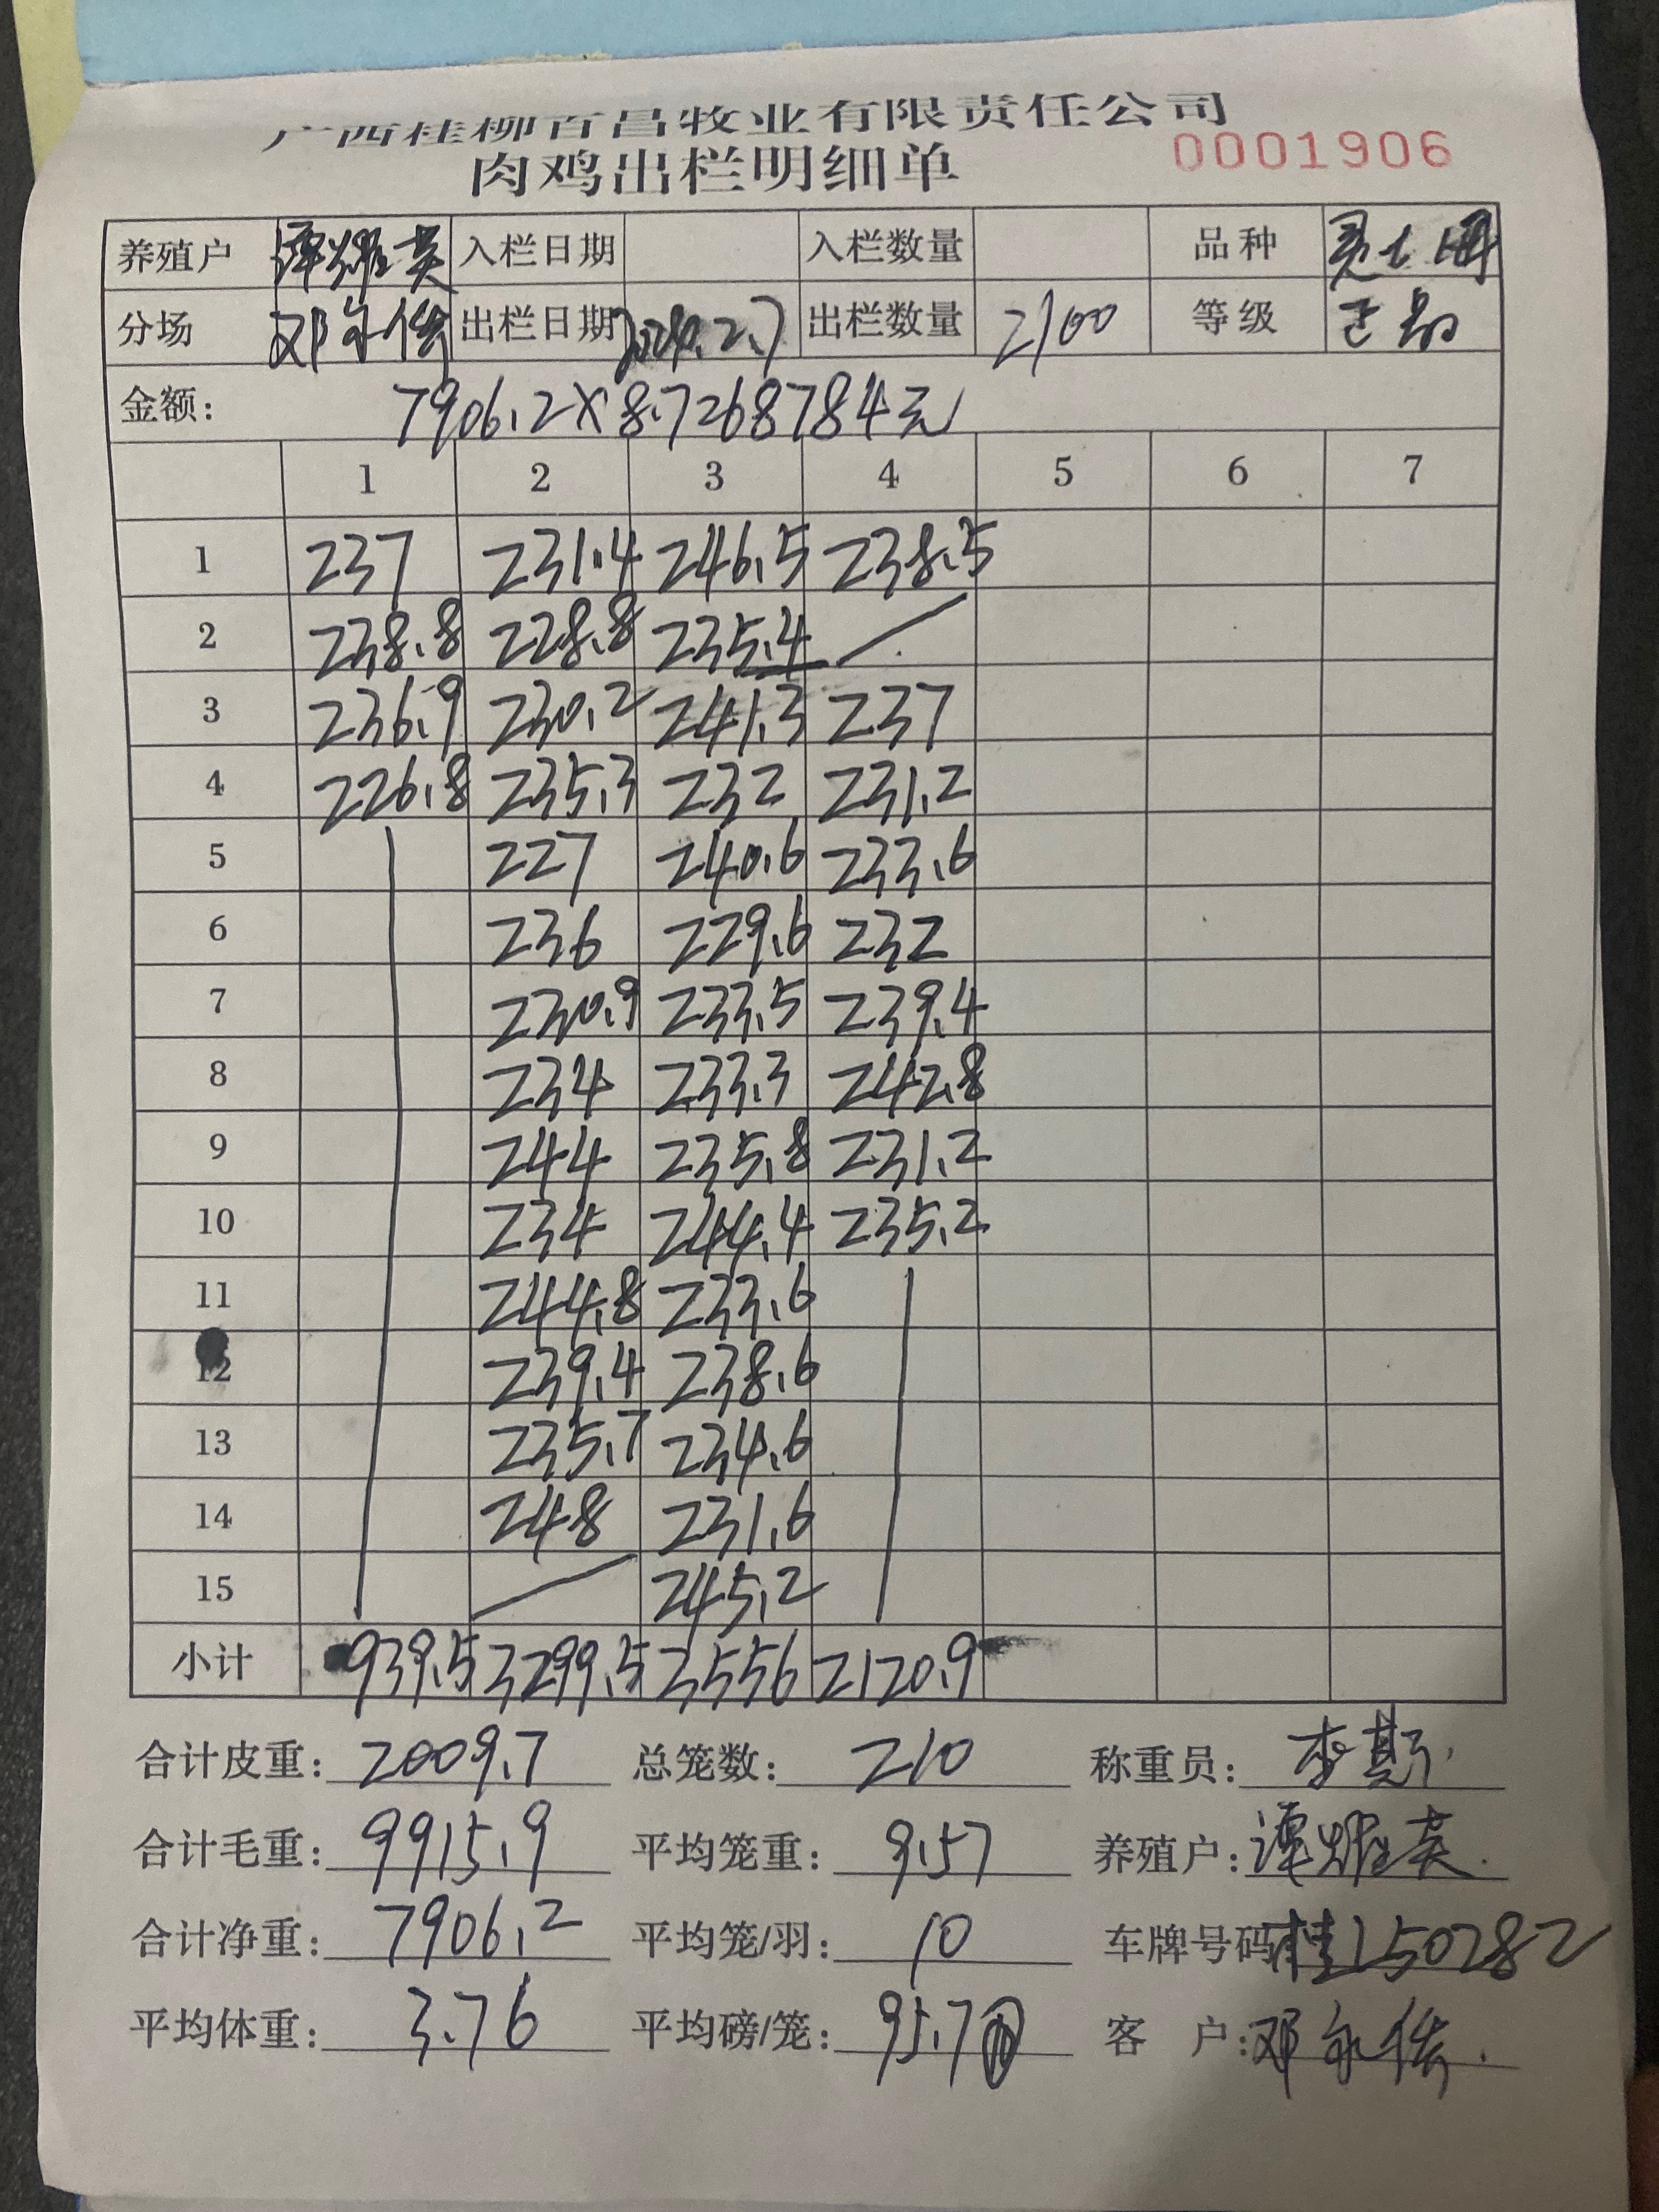 广西桂柳百昌牧业有限责任公司
肉鸡出栏明细单 0001906
养殖户 谭耀英 入栏日期 入栏数量 品种
分场 邓永俊 出栏日期 2024.2.7 出栏数量 2100 等级 正品
金额: 7906.2×8.7=68784元
1 2 3 4 5 6 7
1 237 231.4 246.5 238.5
2 238.8 228.8 235.4 /
3 236.9 230.2 241.3 237
4 226.8 235.3 232 231.2
5 227 240.6 233.6
6 236 229.6 232
7 230.9 233.5 239.4
8 234 233.3 242.8
9 244 235.8 231.2
10 234 244.4 235.2
11 244.8 233.6
12 239.4 238.6
13 235.7 234.6
14 248 231.6
15 / 245.2
小计 939.5 3299.5 3556 2120.9
合计皮重: 2009.7 总笼数: 210 称重员: 李斯
合计毛重: 9915.9 平均笼重: 9.57 养殖户: 谭耀英
合计净重: 7906.2 平均笼/羽: 10 车牌号码: 桂L50282
平均体重: 3.76 平均磅/笼: 95.7 客户: 邓永俊